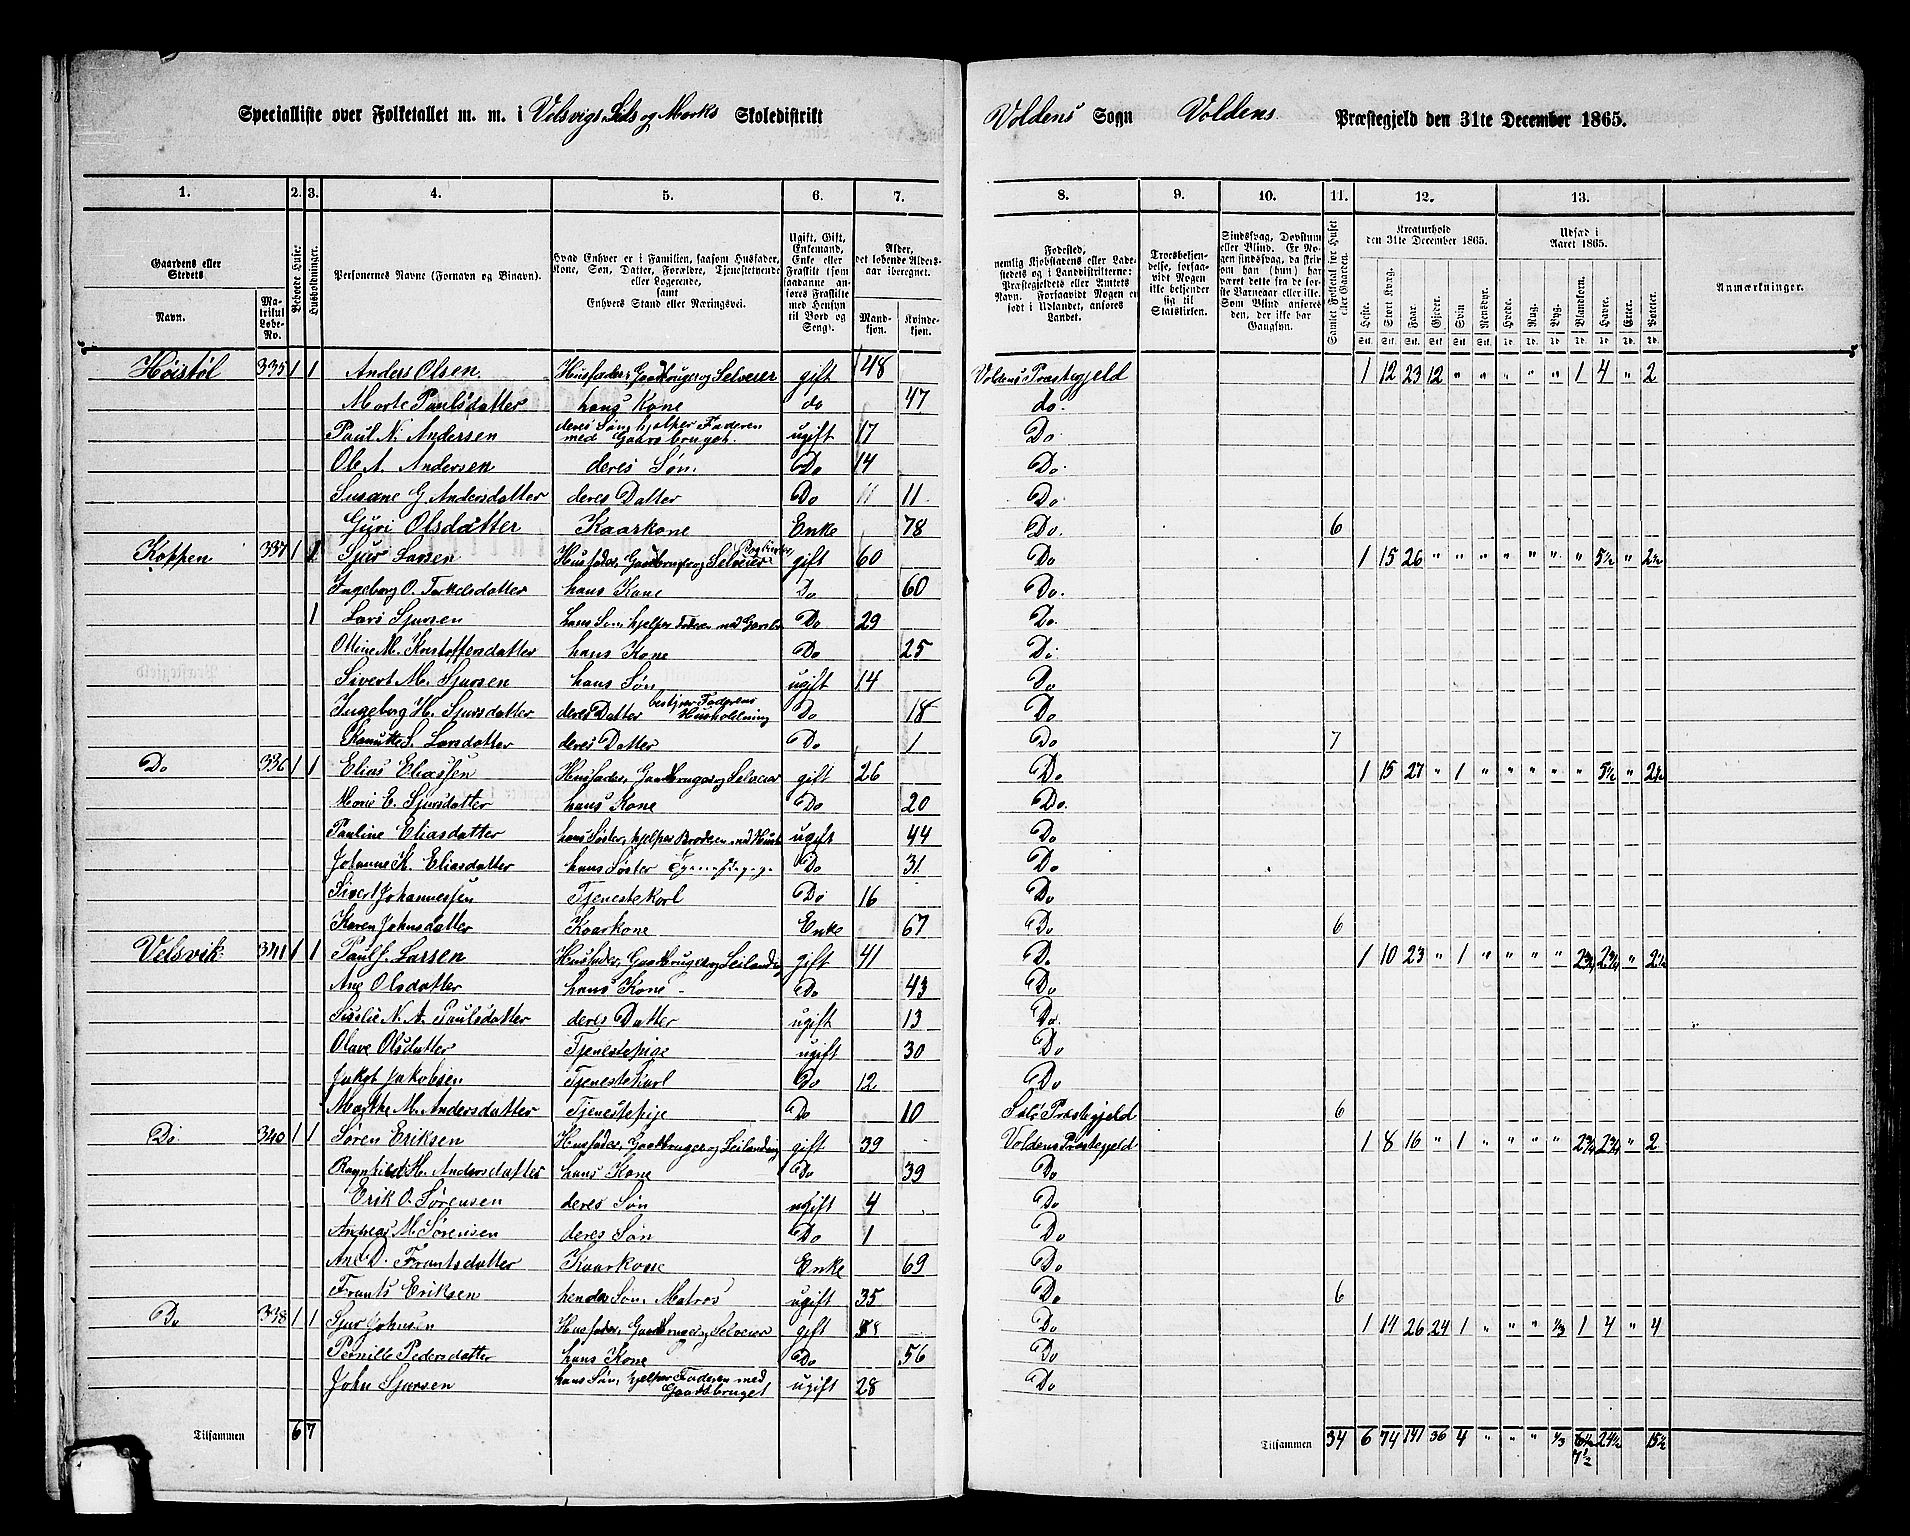 Specialliste over Folketallet m. m. i Velsvigs Leis og Morks Skoledistrikt
Voldens Sogn Voldens Præstegjeld den 31te December 1865.
1. 2. 3. 4. 5. 6. 7. 8. 9. 10. 11. 12. 13.
Gaardens eller Stedets
Navn.
Matrikul Løbe-No.
Beboede Huse.
Husholdninger.
Personernes Navne (Fornavn og Binavn).
Hvad Enhver er i Familien, saasom Husfader, Kone, Søn, Datter, Forældre, Tjenestetyende eller Logerende, samt Enhvers Stand eller Næringsvei.
Ugift, Gift, Enkemand, Enke eller Fraskilt (som saadanne anføres Fraskilte med Hensyn til Bord og Seng).
Alder, det løbende Aldersaar iberegnet.
Mandkjøn.
Kvindekjøn.
Fødested, nemlig Kjøbstadens eller Ladestedets og i Landdistrikterne: Præstegjeldets eller Amtets Navn. Forsaavidt Nogen er født i Udlandet, anføres Landet.
Troesbekjendelse, forsaavidt Nogen ikke bekjender sig til Statskirken.
Sindssvag, Døvstum eller Blind. Er Nogen sindssvag, da skrives om han (hun) har været dette fra de første Barneaar eller ikke. Som Blind anføres den, der ikke har Gangsyn.
Samlet Folketal for Huset eller Gaarden.
Kreaturhold den 31te December 1865.
Heste. Stort Kvæg. Faar. Gjeder. Svin. Rensdyr.
Udsæd i Aaret 1865.
Hvede. Rug. Byg. Blandkorn. Havre. Erter. Poteter.
Anmærkninger.
Høistøl 335 1 1 Anders Olsen Husfader, Gaardbruger og Selveier gift 48 Voldens Præstegjeld 1 12 23 12 " " " " " 1 4 " 2
Marte Paulsdatter hans Kone do 47 do.
Paul N. Andersen deres Søn, hjelper Faderen med Gaardsbruget. ugift 17 Do
Ole A. Andersen deres Søn. Do 14 Do.
Susane G Andersdatter deres Datter Do 11 11 Do.
Guri Olsdatter Kaarkone Enke 78 Do. 6
Koppen 337 1 1 Sjur Larsen Husfader, Gaardbruger og Selveier gift 60 Do 1 15 26 " " " " " " " 5½ " 2½
Ingeborg O. Torkelsdatter hans Kone Do 60 Do.
1 Lars Sjursen hans Søn, hjelper Faderen med Do 29 Do.
Oline M. Kristoffersdatter hans Kone Do 25 Do
Sivert M. Sjursen hans Søn ugift 14 Do
Ingeborg H. Sjursdatter deres Datter bestyrer Faderens Husholdning Do 18 Do
Larsdatter deres Datter Do 1 Do 7
Do 336 1 1 Elias Eliassen Husfader, Gaardbruger og Selveier gift 26 Do 1 15 27 " 1 " " " " " 5½ " 2½
Marie E. Sjursdatter hans Kone Do 20 Do.
Pauline Eliasdatter hans Søster, hjelper Broderen med ugift 44 Do
Johanne K. Eliasdatter hans Søster Do 31. Do
Sivert Johannessen Tjenestekarl Do 16 Do
Karen Johnsdatter Kaarkone Enke 67 Do 6
Velsvik 341 1 1 Paul J. Larsen Husfader, Gaardbruger og Leilænding gift 41 Do. 1 10 23 " 1 " " " " 2¾ 2¾ " 2½
Ane Olsdatter hans Kone Do 43 Do
N. A. Paulsdatter deres Datter ugift 13 Do.
Olave Olsdatter Tjenestepige ugift 30 Do
Jakob Jakobsen Tjenestekarl Do 12 Do
Marthe M. Andersdatter Tjenestepige Do 10 Præstegjeld 6
Do 340 1 1 Søren Eriksen Husfader, Gaardbruger og Leilænding gift 39 Voldens Præstegjeld 1 8 16 " 1 " " " " 2¾ 2¾ " 2
Ragnhild K. Andersdatter hans Kone Do 39 Do
Erik O. Sørensen deres Søn ugift 4 Do
Andreas M. Sørensen deres Søn Do 1 Do
Ane D. Frantsdatter Kaarkone Enke 69 Do
Frants Eriksen hendes Søn, Matros ugift 35 Do 6
Do 338 1 1 Sjur Johnsen Husfader, Gaardbruger og Selveier gift Do 1 14 26 24 1 " " " ⅓ 1 4 " 4
Pernille Pedersdatter hans Kone Do 56 Do
John Sjursen hans Søn, hjelper Faderen med Gaardsbruget ugift 28 Do
Tilsammen 6 7
Tilsammen 34 6 74 141 36 4 " " " ⅓ 6½ 24½ 15½
7½